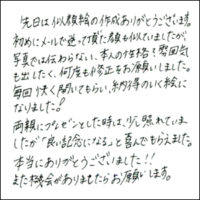 先日は似顔絵の作成ありがとうございます。
初めにメールで送って頂いた顔も似ていましたが、
写真では伝わらない、本人の性格や雰囲気
も出したく、何度も修正をお願いしました。
毎回快く聞いてもらい、納得のいく絵に
なりました。!
両親にプレゼンとした時は、少し照れてい
ましたが「良い記念になる」と喜んでもらえました。
本当にありがとうございました!!
また機会がありましたらお願いします。